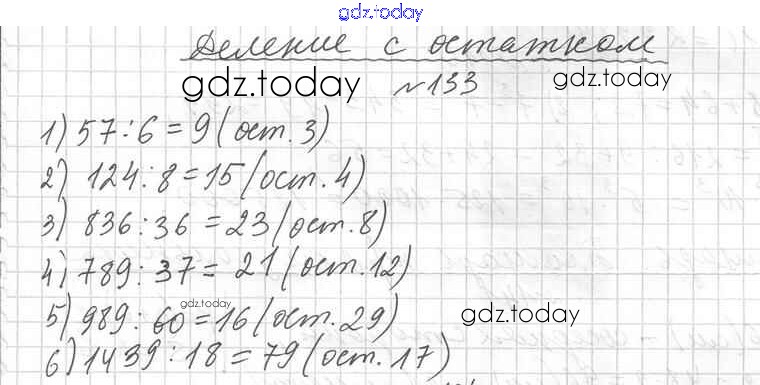 gdz.today
Деление с остатком
gdz.today №133 gdz.today
1) 57:6=9(ост.3)
2) 124:8=15(ост.4)
3) 836:36=23(ост.8)
4) 789:37=21(ост.12)
gdz.today
5) 989:60=16(ост.29) gdz.today
6) 1439:18=79(ост.17)